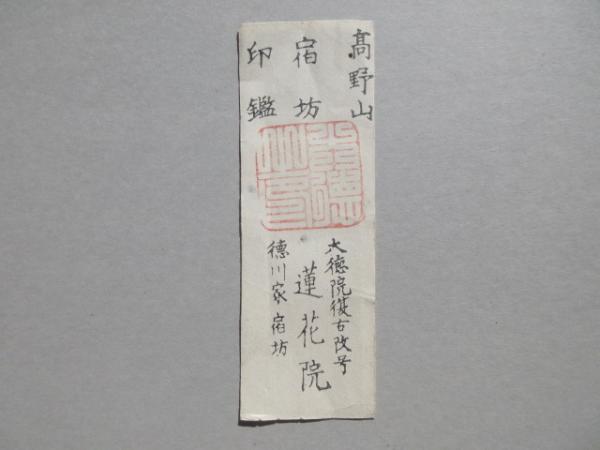 髙野山
宿坊
印鑑
大德院復古改号
蓮花院
德川家宿坊